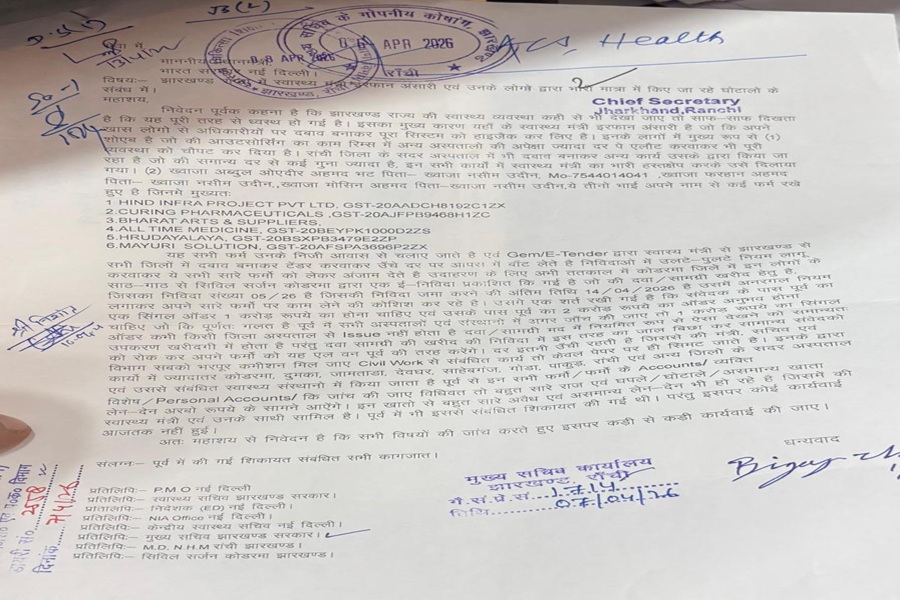 JB(L)
झारखण्ड, राँची
0 6 APR 2026
0 8 APR 2026
ACS Health
माननीय प्रधानमंत्री
भारत सरकार नई दिल्ली।
विषय:- झारखण्ड में स्वास्थ्य मंत्री इरफान अंसारी एवं उनके लोगों द्वारा भारी मात्रा में किए जा रहे घोटालो के
संबंध में।
महाशय,
Chief Secretary
Jharkhand,Ranchi
निवेदन पूर्वक कहना है कि झारखण्ड राज्य की स्वास्थ्य व्यवस्था कही से भी देखा जाए तो साफ-साफ दिखता
है कि यह पूरी तरह से ध्वस्त हो गई है। इसका मुख्य कारण यही के स्वास्थ्य मंत्री इरफान अंसारी है जो कि अपने
खास लोगो से अधिकारीयों पर दबाव बनाकर पूरा सिस्टम को हाइजैक कर लिए है। इनके लोगों में मुख्य रूप से (1)
शोएब है जो की आउटसोर्सिंग का काम रिम्स में अन्य अस्पतालो की अपेक्षा ज्यादा दर पे एलौट करवाकर भी पूरी
व्यवस्था को चौपट कर दिया है। रांची जिला के सदर अस्पताल में भी दबाव बनाकर अन्य कार्य उसके द्वारा किया जा
रहा है जो की सामान्य दर से कई गुना ज्यादा है, इन सभी कार्यो में स्वास्थ्य मंत्री का भारी हस्तक्षेप करके उसे दिलाया
गया। (2) ख्वाजा अब्दुल ओएदीर अहमद भट पिता- ख्वाजा नसीम उदीन, Mo-7544014041 ,ख्वाजा फरहान अहमद
पिता- ख्वाजा नसीम उदीन,ख्वाजा मोसिन अहमद पिता-ख्वाजा नसीम उदीन,ये तीनो भाई अपने नाम से कई फर्म रखे
हुए है जिनमे मुख्यतः
1 HIND INFRA PROJECT PVT LTD, GST-20AADCH8192C1ZX
2.CURING PHARMACEUTICALS ,GST-20AJFPB9468H1ZC
3.BHARAT ARTS & SUPPLIERS,
4.ALL TIME MEDICINE, GST-20BEYPK1000D2ZS
5.HRUDAYALAYA, GST-20BSXPB3479E2ZP
6.MAYURI SOLUTION, GST-20AFSPA3696P2ZX
यह सभी फर्म उनके निजी आवास से चलाए जाते है एवं Gem/E-Tender द्वारा स्वास्थ मंत्री से झारखण्ड से
सभी जिलों में दबाव बनाकर टेंडर करवाकर उँचे दर पर आपस में बाँट लेते है निविदाओं में उलटे-पुलटे नियम लागू
करवाकर ये सभी सारे फर्मो को लेकर अंजाम देते है उदाहरण के लिए अभी ततकाल में कोडरमा जिले में इन लोगों के
साठ-गाठ से सिविल सर्जन कोडरमा द्वारा एक ई-निविदा प्रकाशित कि गई है जो की दवा /सामग्री खरीद हेतु है,
जिसका निविदा संख्या 05/26 है जिसकी निविदा जमा करने की अंतिम तिथि 14/04/2026 है उसमें अनरगल नियम
लगाकर अपने सारे फर्मो पर काम लेने की कोशिश कर रहे है। उसमे एक शर्त रखी गई है कि संवेदक के पास पूर्व का
एक सिंगल ऑडर 1 करोड़ रूपये का होना चाहिए एवं उसके पास पूर्व का 2 करोड़ रूपये का ऑडर अनुभव होना
चाहिए जो कि पूर्णतः गलत है पूर्व में सभी अस्पतालों एवं संस्थानो में अगर जाँच की जाए तो 1 करोड़ का सिंगल
ऑडर कभी किसी जिला अस्पताल से Issue नहीं होता है दवा/सामग्री मद में
उपकरण खरीदगी में होता है परंतु दर इतनी उँची रहती है जिसकी
को रोक कर अपने फर्मो को यह एल वन पूर्व की तरह करेंगे।
विभाग सबको भरपूर कमीशन मिल जाए Civil Work से संबंधित कार्य तो केवल पेपर पर ही सिमट जाते है। इनके द्वारा
कार्यो में ज्यादातर कोडरमा, दुमका, जामताडा, देवघर, साहेबगंज, गोडा, पाकुड़, रांची एवं अन्य जिलों के सदर अस्पताल
एवं उससे संबंधित स्वास्थ्य संस्थानो में किया जाता है पूर्व से इन सभी फर्मो /फर्मो के Accounts/ व्यक्ति
विशेष /Personal Accounts/ कि जांच की जाए विधिवत तो बहुत सारे राज एवं घपले/घोटाले/असमान्य खाता
लेन-देन अरबो रूपये के सामने आएँगे। इन खातो से बहुत सारे अवैध एवं असमान्य लेन-देन भी हो रहे है, जिसमें की
स्वास्थ्य मंत्री एवं उनके साथी सामिल है। पूर्व में भी इससे संबंधित शिकायत की गई थी। परंतु इसपर कोई कार्यवाई
आजतक नहीं हुई।
अतः महाशय से निवेदन है कि सभी विषयों की जांच करते हुए इसपर कड़ी से कड़ी कार्यवाई की जाए।
धन्यवाद
संलग्न- पूर्व में की गई शिकायत संबंधित सभी कागजात।
मुख्य सचिव कार्यालय
झारखण्ड, राँची
प्रतिलिपि:- P.M.O नई दिल्ली
प्रतिलिपि:- स्वास्थ्य सचिव झारखण्ड सरकार।
प्रतिलिपि:- निर्देशक (ED) नई दिल्ली।
प्रतिलिपि:- NIA Office नई दिल्ली।
प्रतिलिपि:- केन्द्रीय स्वास्थ्य सचिव नई दिल्ली।
प्रतिलिपि:- मुख्य सचिव झारखण्ड सरकार।
प्रतिलिपि:- M.D. N.H.M रांची झारखण्ड।
प्रतिलिपि:- सिविल सर्जन कोडरमा झारखण्ड।
दिनांक 7/4/26